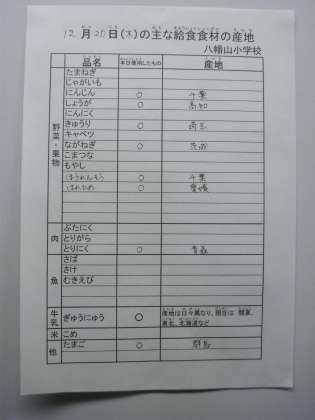 12月20日(木)の主な給食食材の産地
八幡山小学校
品名 本日使用したもの 産地
野菜・果物
たまねぎ
じゃがいも
にんじん ○ 千葉
しょうが ○ 高知
にんにく
きゅうり ○ 埼玉
キャベツ
ながねぎ ○ 茨城
こまつな
もやし
ほうれんそう ○ 千葉
はれひめ ○ 愛媛
肉
ぶたにく
とりがら
とりにく ○ 青森
魚
さば
さけ
むきえび
牛乳 ぎゅうにゅう ○ 産地は日々異なり、現在は 関東、
東北、北海道など
米 こめ
他 たまご ○ 群馬